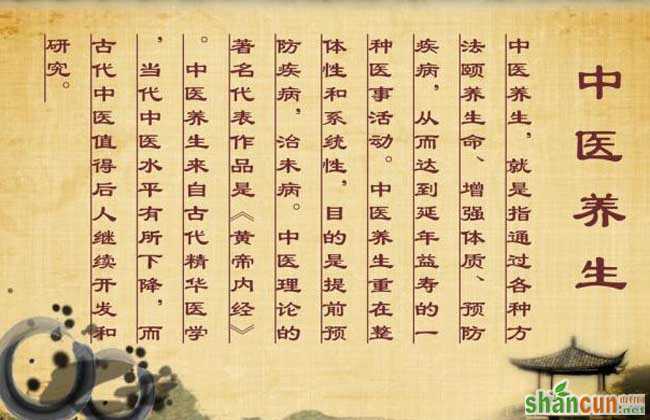 中医养生
中医养生，就是指通过各种方
法颐养生命、增强体质、预防
疾病，从而达到延年益寿的一
种医事活动。中医养生重在整
体性和系统性，目的是提前预
防疾病，治未病。中医理论的
著名代表作品是《黄帝内经》
。中医养生来自古代精华医学
，当代中医水平有所下降，而
古代中医值得后人继续开发和
研究。
shancun
山村网
.net